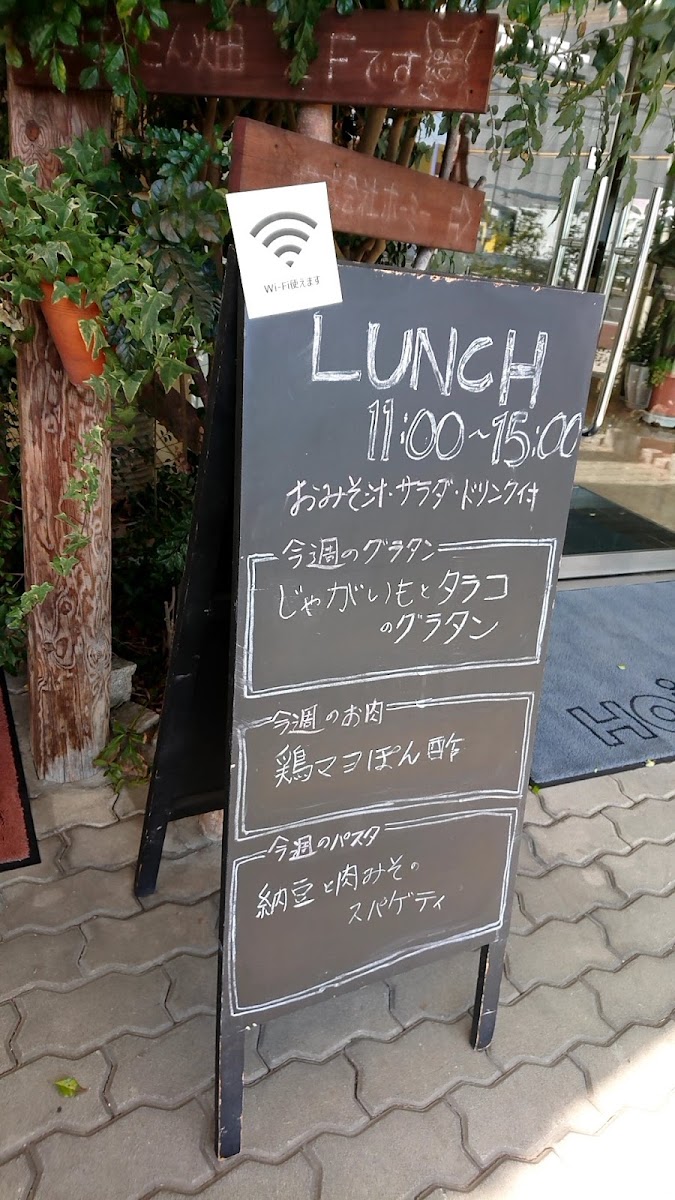 畑
Fです
Wi-Fi使えます
LUNCH
11:00~15:00
おみそ汁・サラダ・ドリンク付
今週のグラタン
じゃがいもとタラコ
のグラタン
今週のお肉
鶏マヨぽん酢
今週のパスタ
納豆と肉みその
スパゲティ